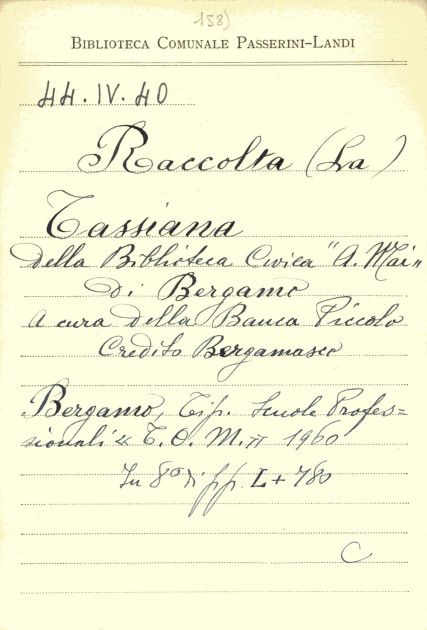 158)
BIBLIOTECA COMUNALE PASSERINI-LANDI
44.IV.40
Raccolta (La)
Tassiana
della Biblioteca Civica "A. Mai"
di Bergamo
A cura della Banca Piccolo
Credito Bergamasco
Bergamo, Tip. Scuole Profes=
sionali "T. O. M." 1960
In 8º di pp. L + 780
C